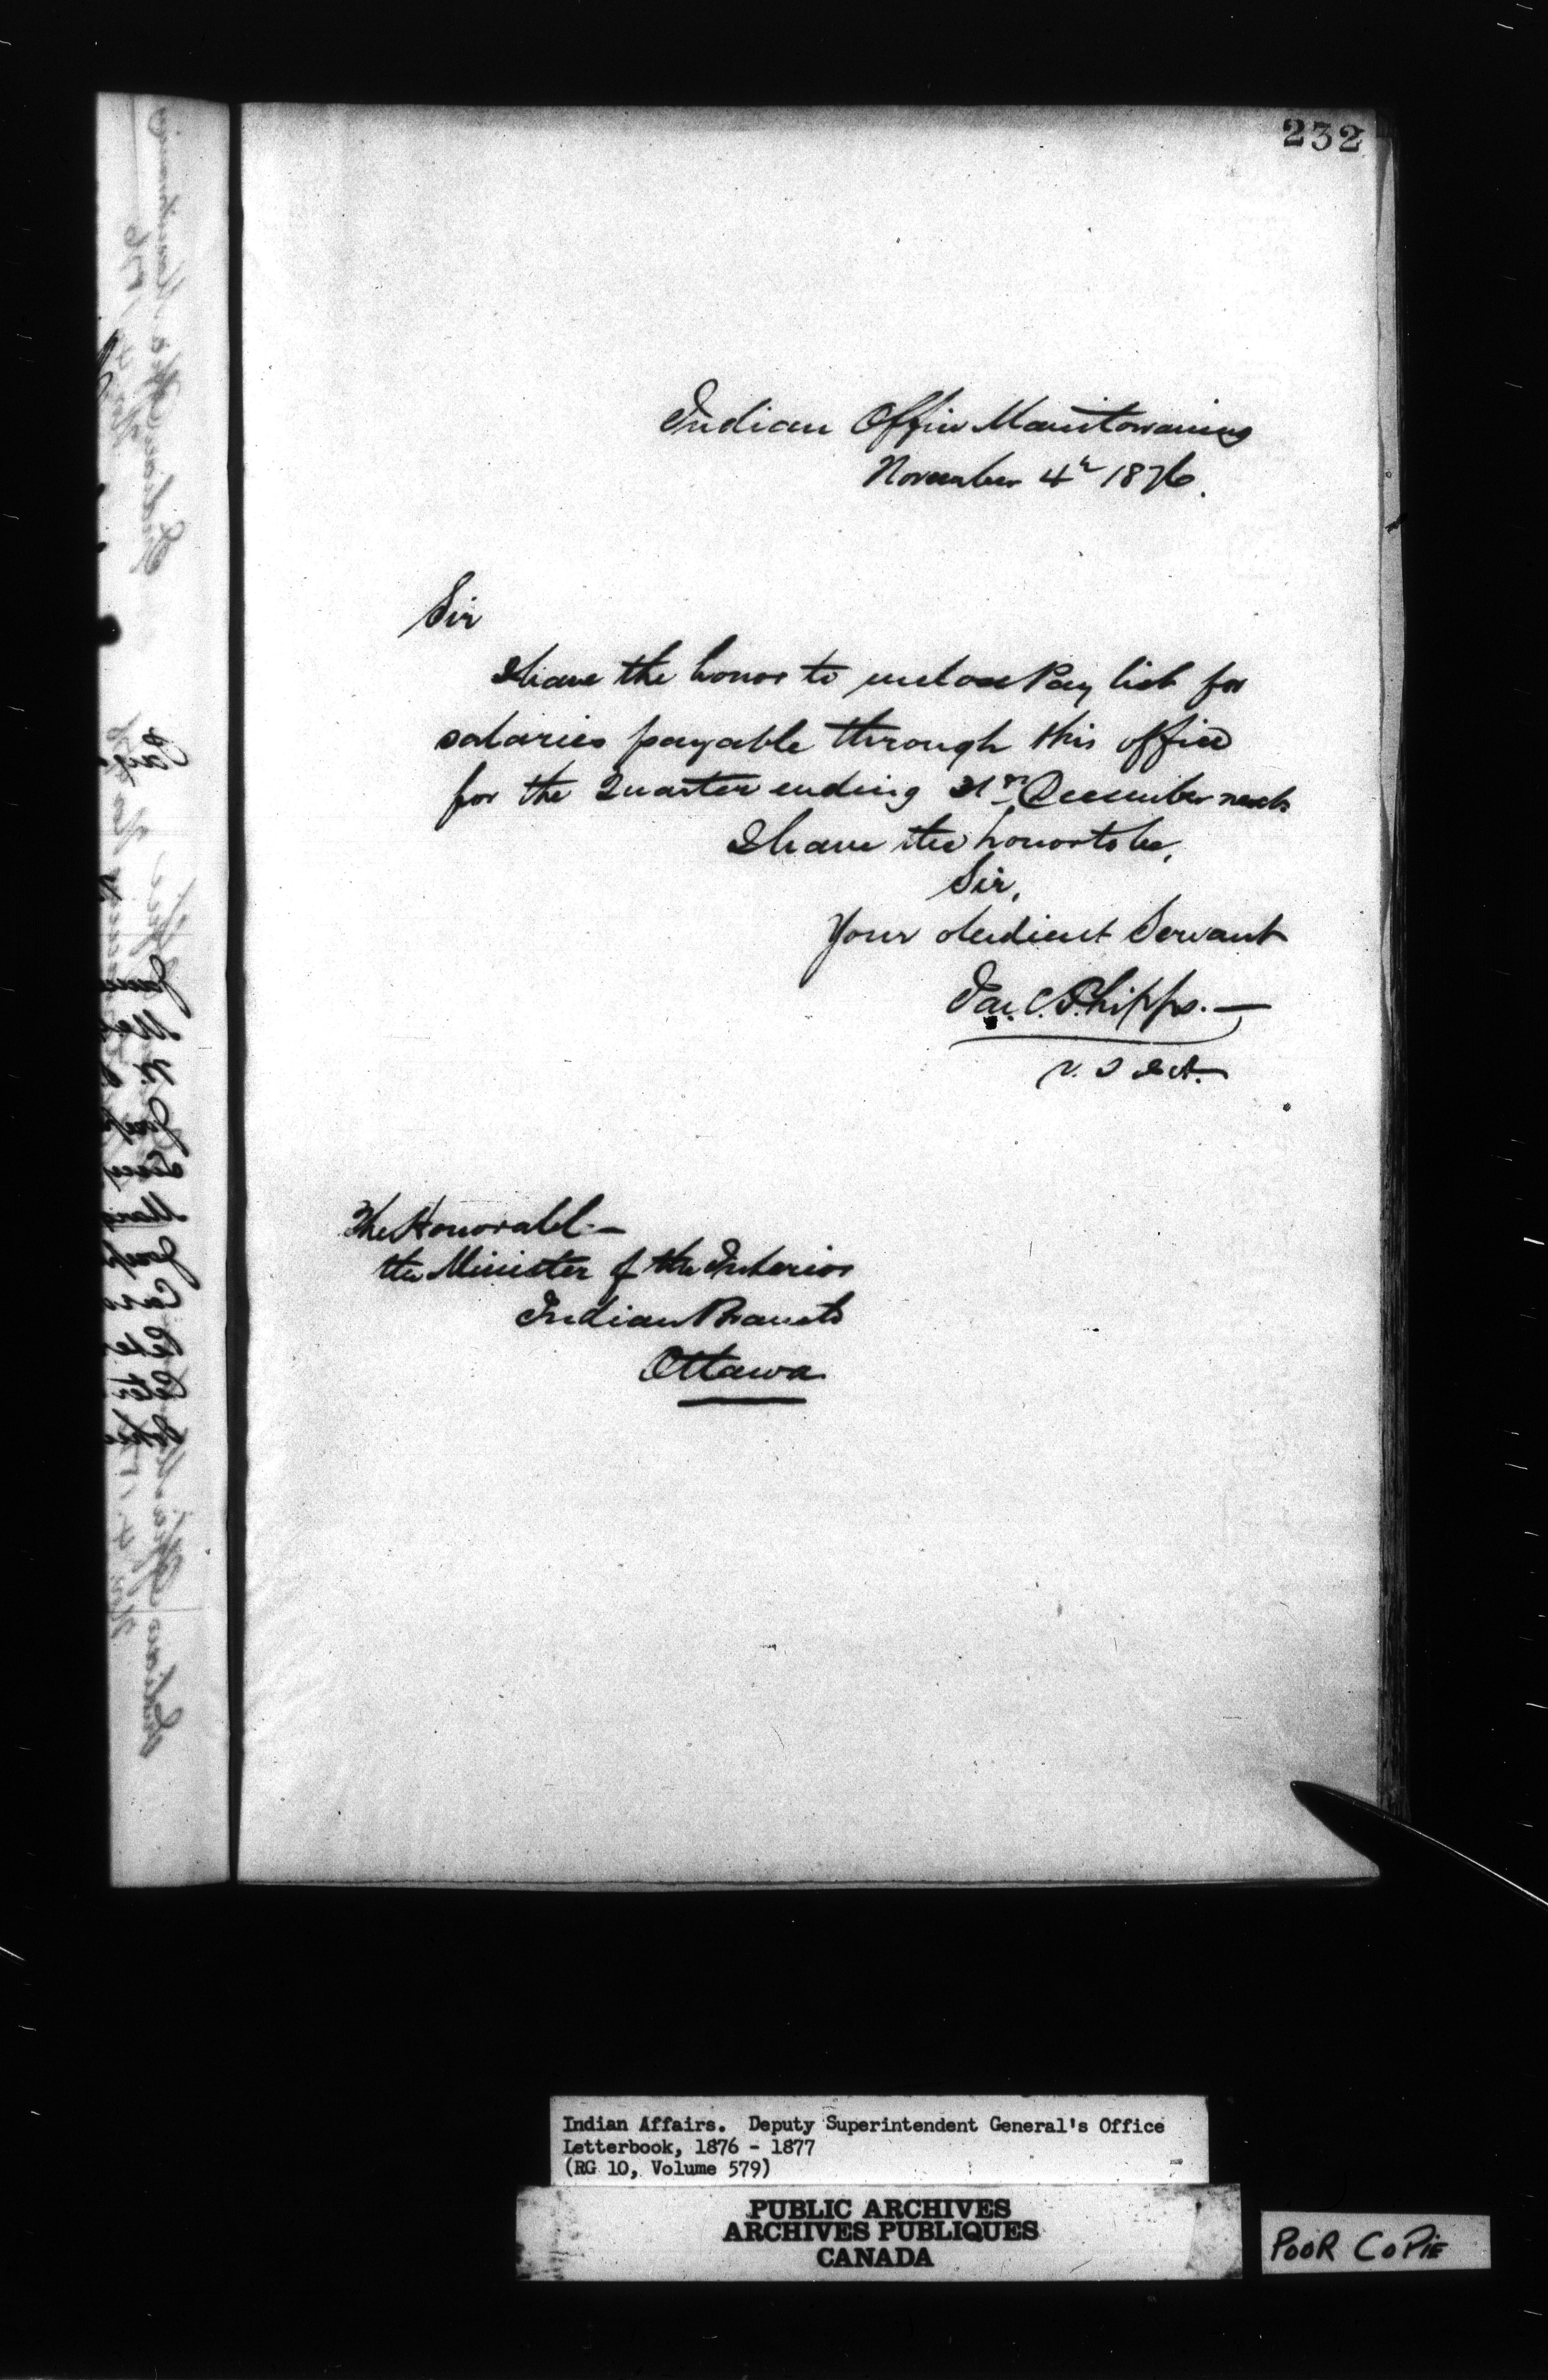 232
Indian Office Manitowaning
November 4th 1876.
Sir
I have the honor to enclose Pay list for
salaries payable through this office
for the Quarter ending 31st December next
I have the honor to be,
Sir,
Your obedient Servant
Jas. C. Phipps. —
V. S I A.
The Honorable —
the Minister of the Interior
Indian Branch
Ottawa
Indian Affairs. Deputy Superintendent General's Office
Letterbook, 1876 - 1877
(RG 10, Volume 579)
PUBLIC ARCHIVES
ARCHIVES PUBLIQUES
CANADA
POOR COPIE